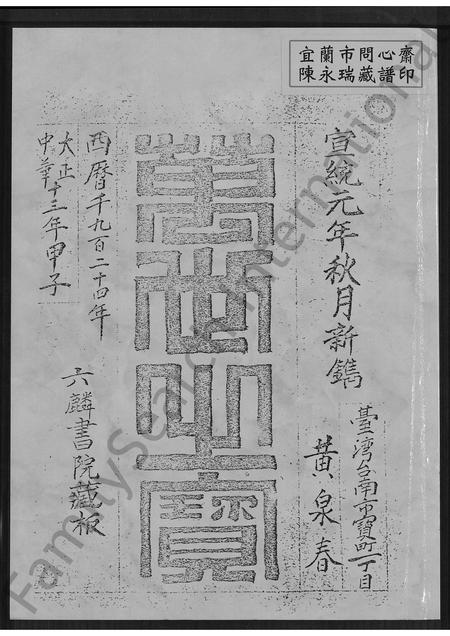 宜蘭市問心齋
陳永瑞藏譜印
宣統元年秋月新鐫
臺灣台南市寶町一丁目
黃泉春
萬世之寶
西曆千九百二十四年
大正
中華十三年甲子
六麟書院藏板
FamilySearch International